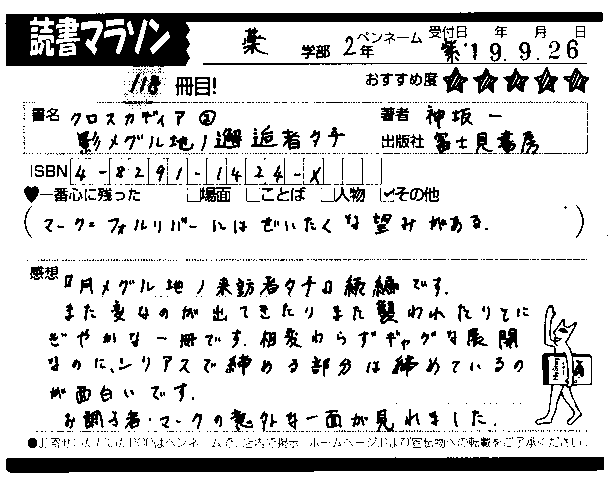 読書マラソン
薬 学部 2年 ペンネーム 受付日 年 月 日
'19.9.26
118 冊目! おすすめ度 ☆☆☆☆☆
書名 クロスカディア② 著者 神坂 一
影メグル地ノ邂逅者タチ 出版社 富士見書房
ISBN 4-8291-1424-X
♥一番心に残った □場面 □ことば □人物 ☑その他
(マーク=フォルリバーにはぜいたくな望みがある.)
感想 『月メグル地ノ来訪者タチ』続編です.
また変なのが出てきたりまた襲われたりとに
ぎやかな一冊です.相変わらずギャグな展開
なのに、シリアスで締める部分は締めているの
が面白いです.
お調子者・マークの意外な一面が見れました.
●お寄せいただいたPOPはペンネームで、店内で掲示・ホームページおよび宣伝物への転載をご了承ください。